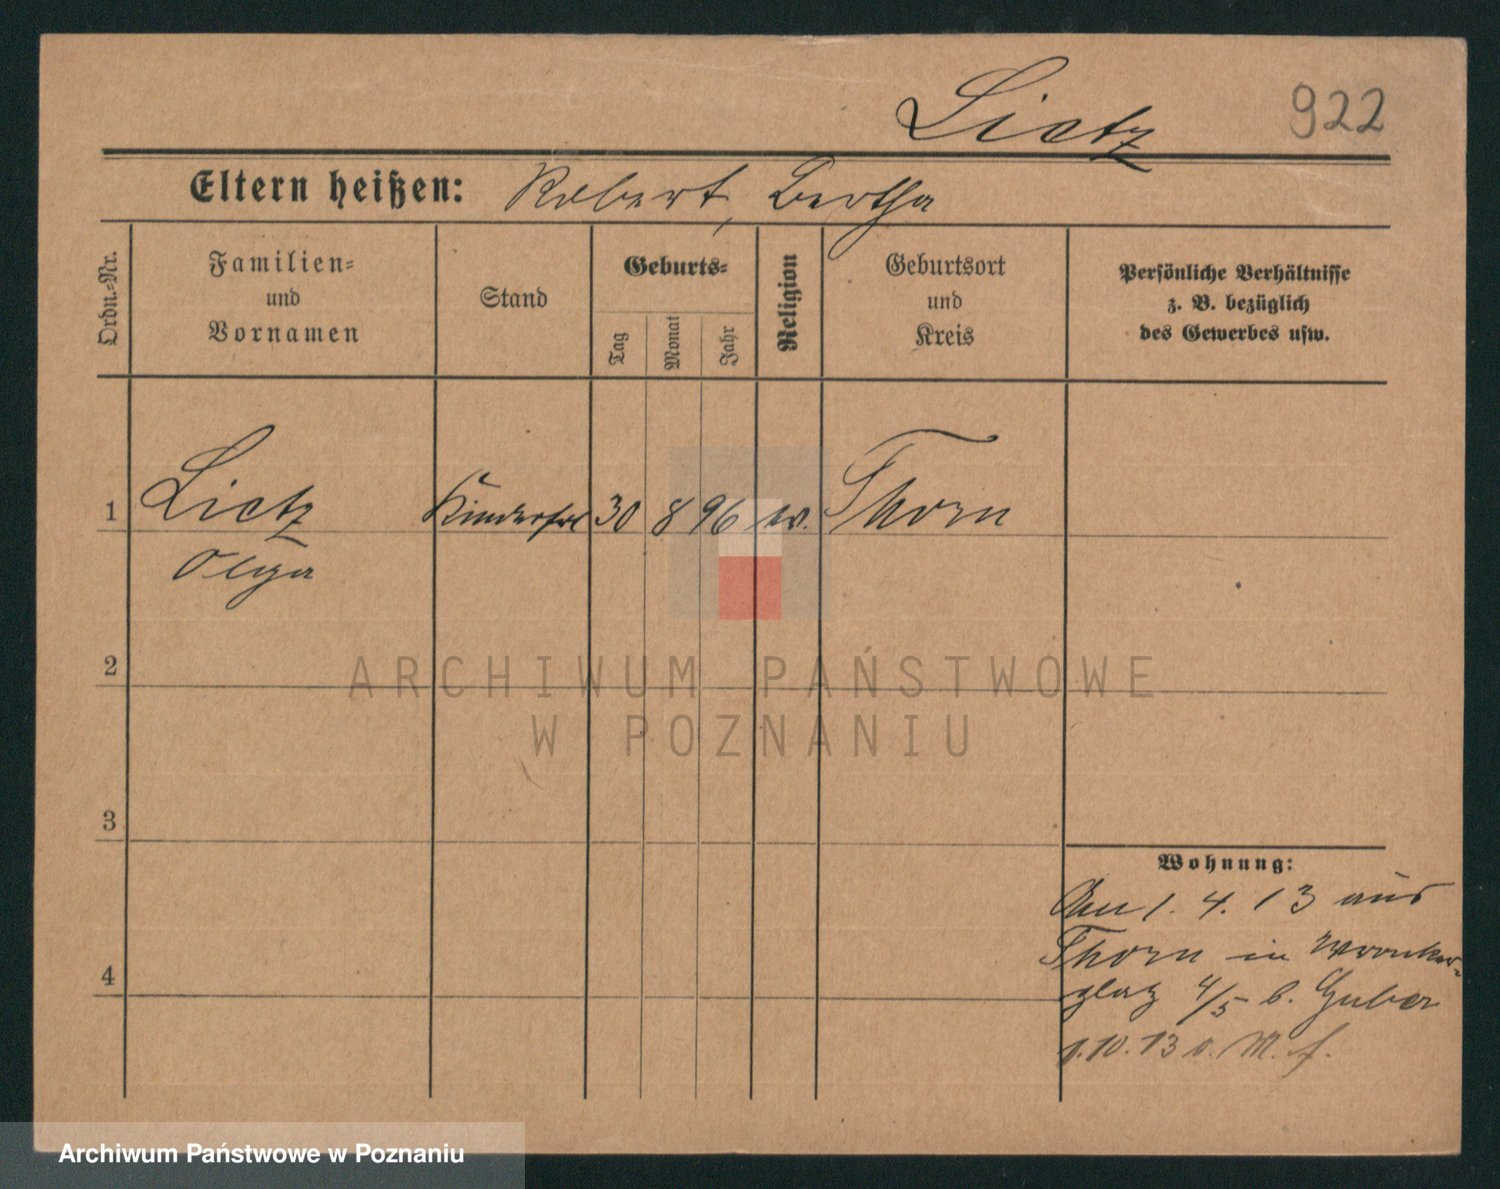 Lietz 922
Eltern heißen: Robert, Bertha
Ordn.-Nr.
Familien-
und
Vornamen
Stand
Geburts-
Tag
Monat
Jahr
Religion
Geburtsort
und
Kreis
Persönliche Verhältnisse
z. B. bezüglich
des Gewerbes usw.
1 Lietz 30 8 96 Thorn
Olga
2
ARCHIWUM PAŃSTWOWE
W POZNANIU
3
4
Wohnung:
Am 1. 4. 13 aus
Thorn in Wronker-
platz 4/5 b.
1.10.13
Archiwum Państwowe w Poznaniu